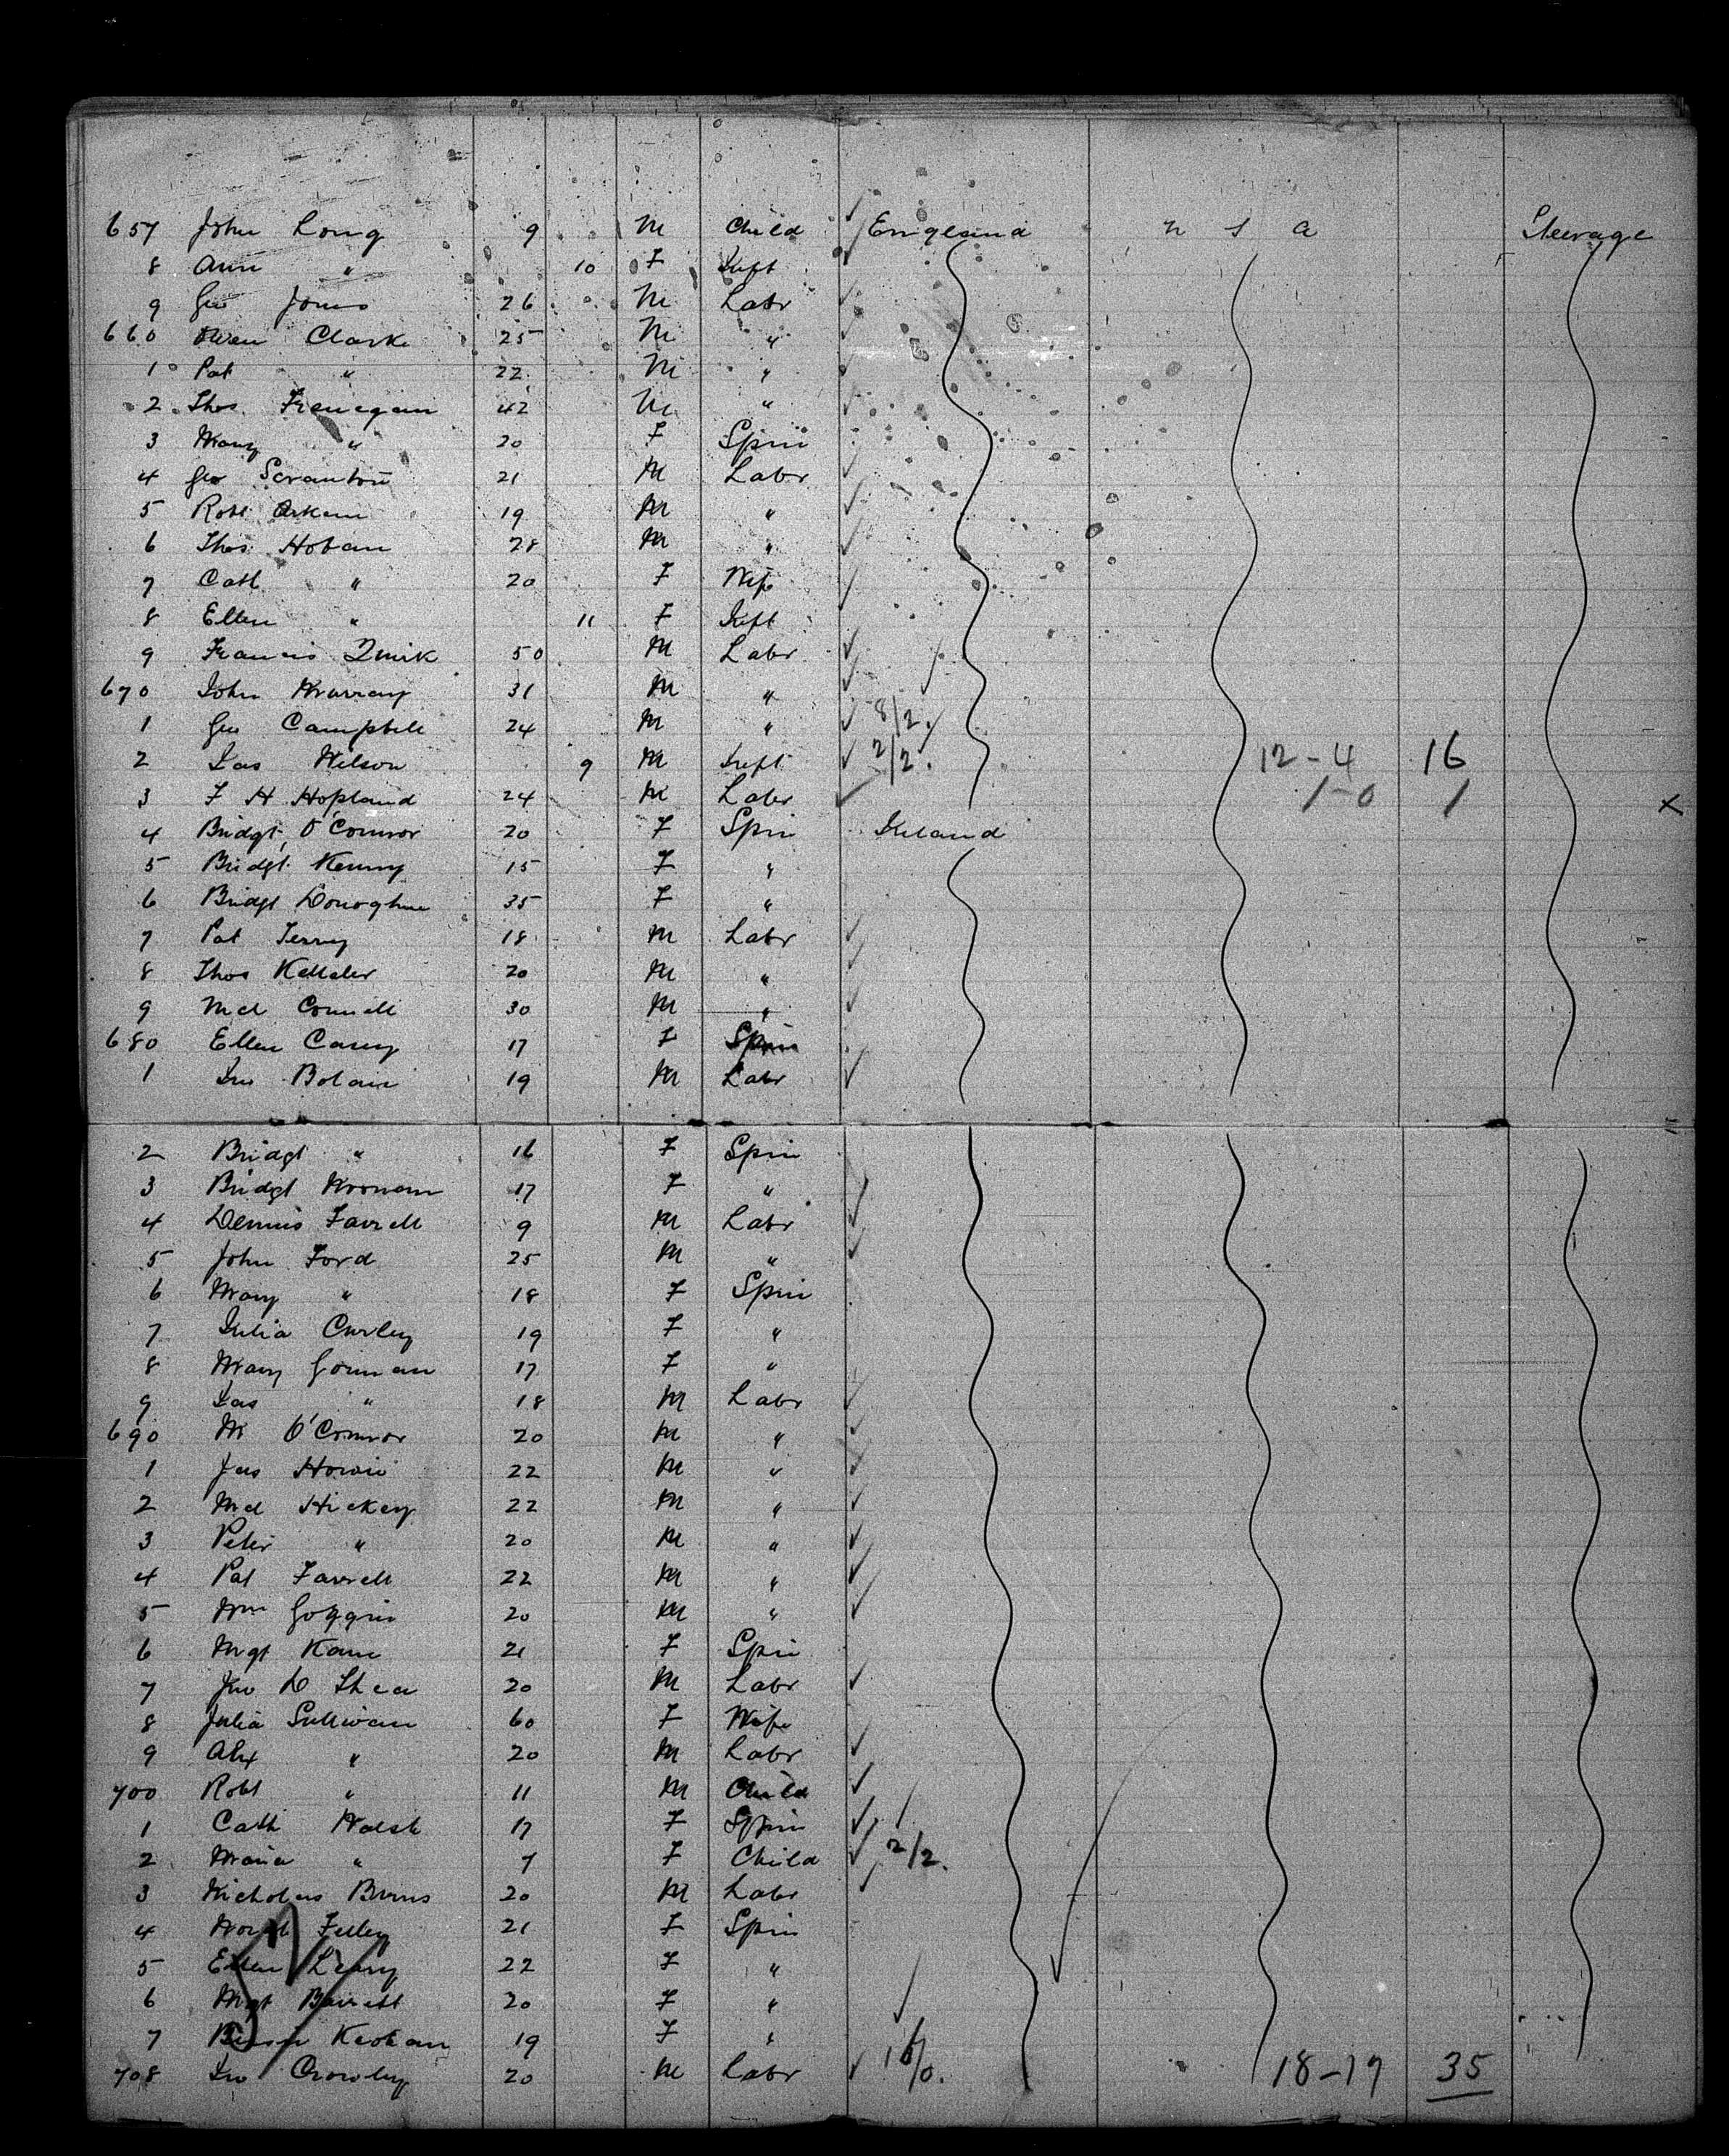 657 John Long 9 M Child England U S A Steerage
8 Ann " 10 F Inft
9 Geo Jones 26 M Labr
660 Owen Clarke 25 M "
1 Pat " 22 M "
2 Thos. Frenegan 42 M "
3 Mary " 20 F Spin
4 Geo Scranton 21 M Labr
5 Robt 19 M "
6 Thos. Hoban 28 M "
7 Cath " 20 F Wife
8 Ellen " 11 F Inft
9 Francis Quirk 50 M Labr
670 John Murray 31 M "
1 Geo Campbell 24 M " 8/2.
2 Jas Wilson 9 M Inft 2/2. 12-4 16
3 F H Hopland 24 M Labr 1-0 1 X
4 Bridgt. O'Connor 20 F Spin Ireland
5 Bridgt. Kenny 15 F "
6 Bridgt Donoghue 35 F "
7 Pat Terry 18 M Labr
8 Thos Kelleher 20 M "
9 Mcl Connell 30 M "
680 Ellen Casey 17 F Spin
1 Jno Bolain 19 M Labr
2 Bridgt " 16 F Spin
3 Bridgt Noonan 17 F "
4 Dennis Farrell 9 M Labr
5 John Ford 25 M "
6 Mary " 18 F Spin
7 Julia Curley 19 F "
8 Mary Gorman 17 F "
9 Jas " 18 M Labr
690 M O'Connor 20 M "
1 Jas Howie 22 M "
2 Mcl Hickey 22 M "
3 Peter " 20 M "
4 Pat Farrell 22 M "
5 Wm Goggin 20 M "
6 Mgt Kane 21 F Spin
7 Jno O Shea 20 M Labr
8 Julia Sullivan 60 F Wife
9 Alex " 20 M Labr
700 Robt " 11 M Child
1 Cath Walsh 17 F Spin
2 Maria " 7 F Child 2/2.
3 Nicholas Burns 20 M Labr
4 Felley 21 F Spin
5 Ellen Leary 22 F "
6 Mgt Barrett 20 F "
7 Keohan 19 F "
708 Jno Crowley 20 M Labr 16/0. 18-17 35